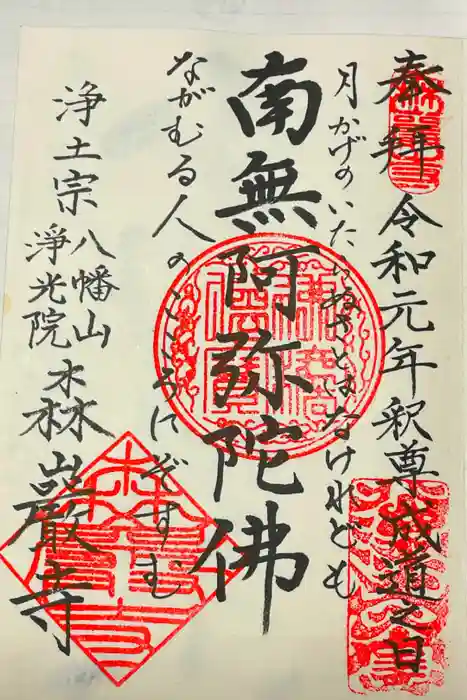 奉拝 令和元年釈尊成道之日
月かげのいたらぬさとはなけれども
南無阿弥陀佛
ながむる人のこころにぞすむ
浄土宗 八幡山
淨光院
森巖寺